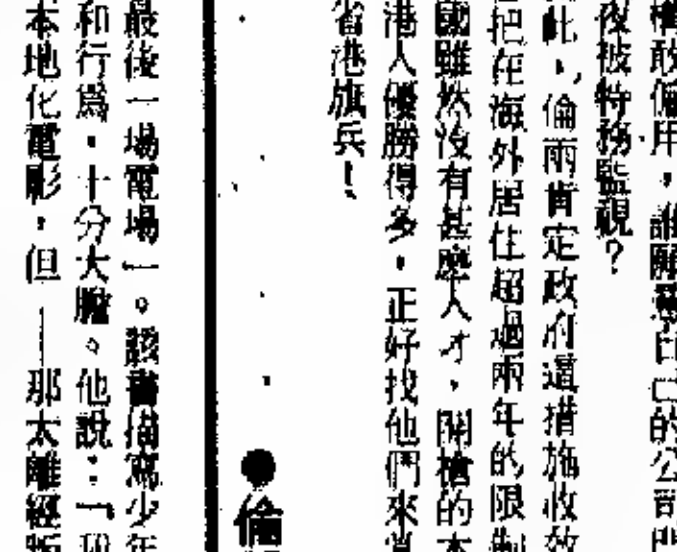 權敢僱用，誰願意自己的公司門
夜被特務監視？
此，倫兩肯定政府這措施收效
把在海外居住超過兩年的限制
國雖然沒有甚麼人才，開槍的本
港人優勝得多，正好找他們來當
省港旗兵！
●倫
最後一場電場」。該書描寫少年
和行爲，十分大膽。他說：「我
本地化電影，但——那太離經叛